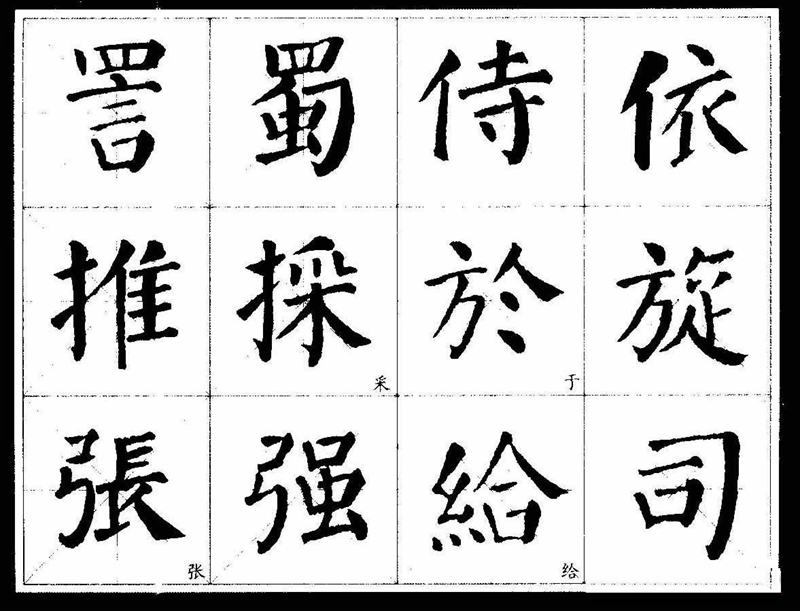 詈 蜀 侍 依
推 採 於 旋
采 于
張 强 給 司
张 给